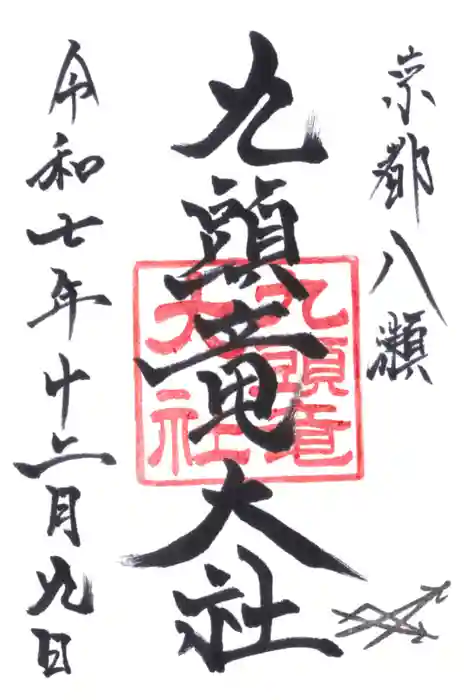 京都八瀬
九頭竜大社
九頭竜大社
令和七年十二月九日